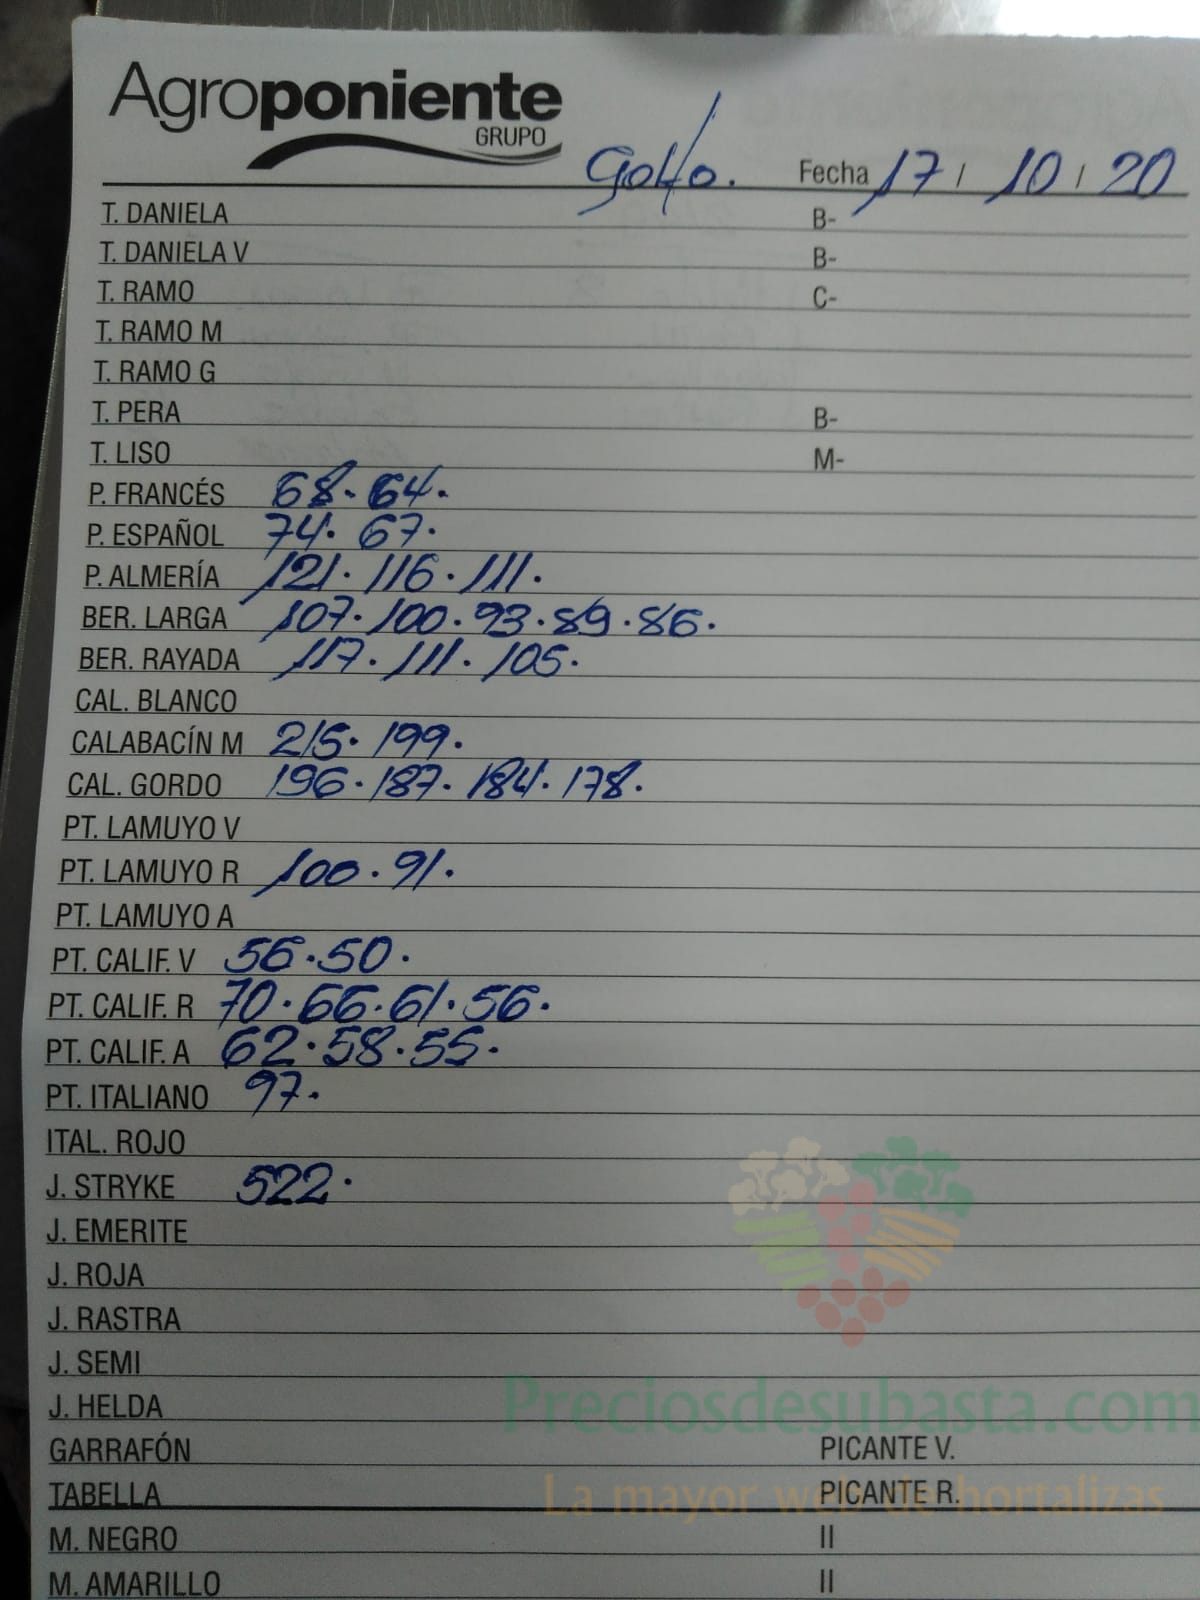 Agroponiente
GRUPO
Golfo. Fecha 17 / 10 / 20
T. DANIELA B-
T. DANIELA V B-
T. RAMO C-
T. RAMO M
T. RAMO G
T. PERA B-
T. LISO M-
P. FRANCÉS 68. 64.
P. ESPAÑOL 74. 67.
P. ALMERÍA 121. 116. 111.
BER. LARGA 107. 100. 93. 89. 86.
BER. RAYADA 117. 111. 105.
CAL. BLANCO
CALABACÍN M 215. 199.
CAL. GORDO 196. 187. 184. 178.
PT. LAMUYO V
PT. LAMUYO R 100. 91.
PT. LAMUYO A
PT. CALIF. V 56. 50.
PT. CALIF. R 70. 66. 61. 56.
PT. CALIF. A 62. 58. 55.
PT. ITALIANO 97.
ITAL. ROJO
J. STRYKE 522.
J. EMERITE
J. ROJA
J. RASTRA
J. SEMI
J. HELDA
Preciosdesubasta.com
GARRAFÓN PICANTE V.
TABELLA PICANTE R.
La mayor web de hortalizas
M. NEGRO II
M. AMARILLO II